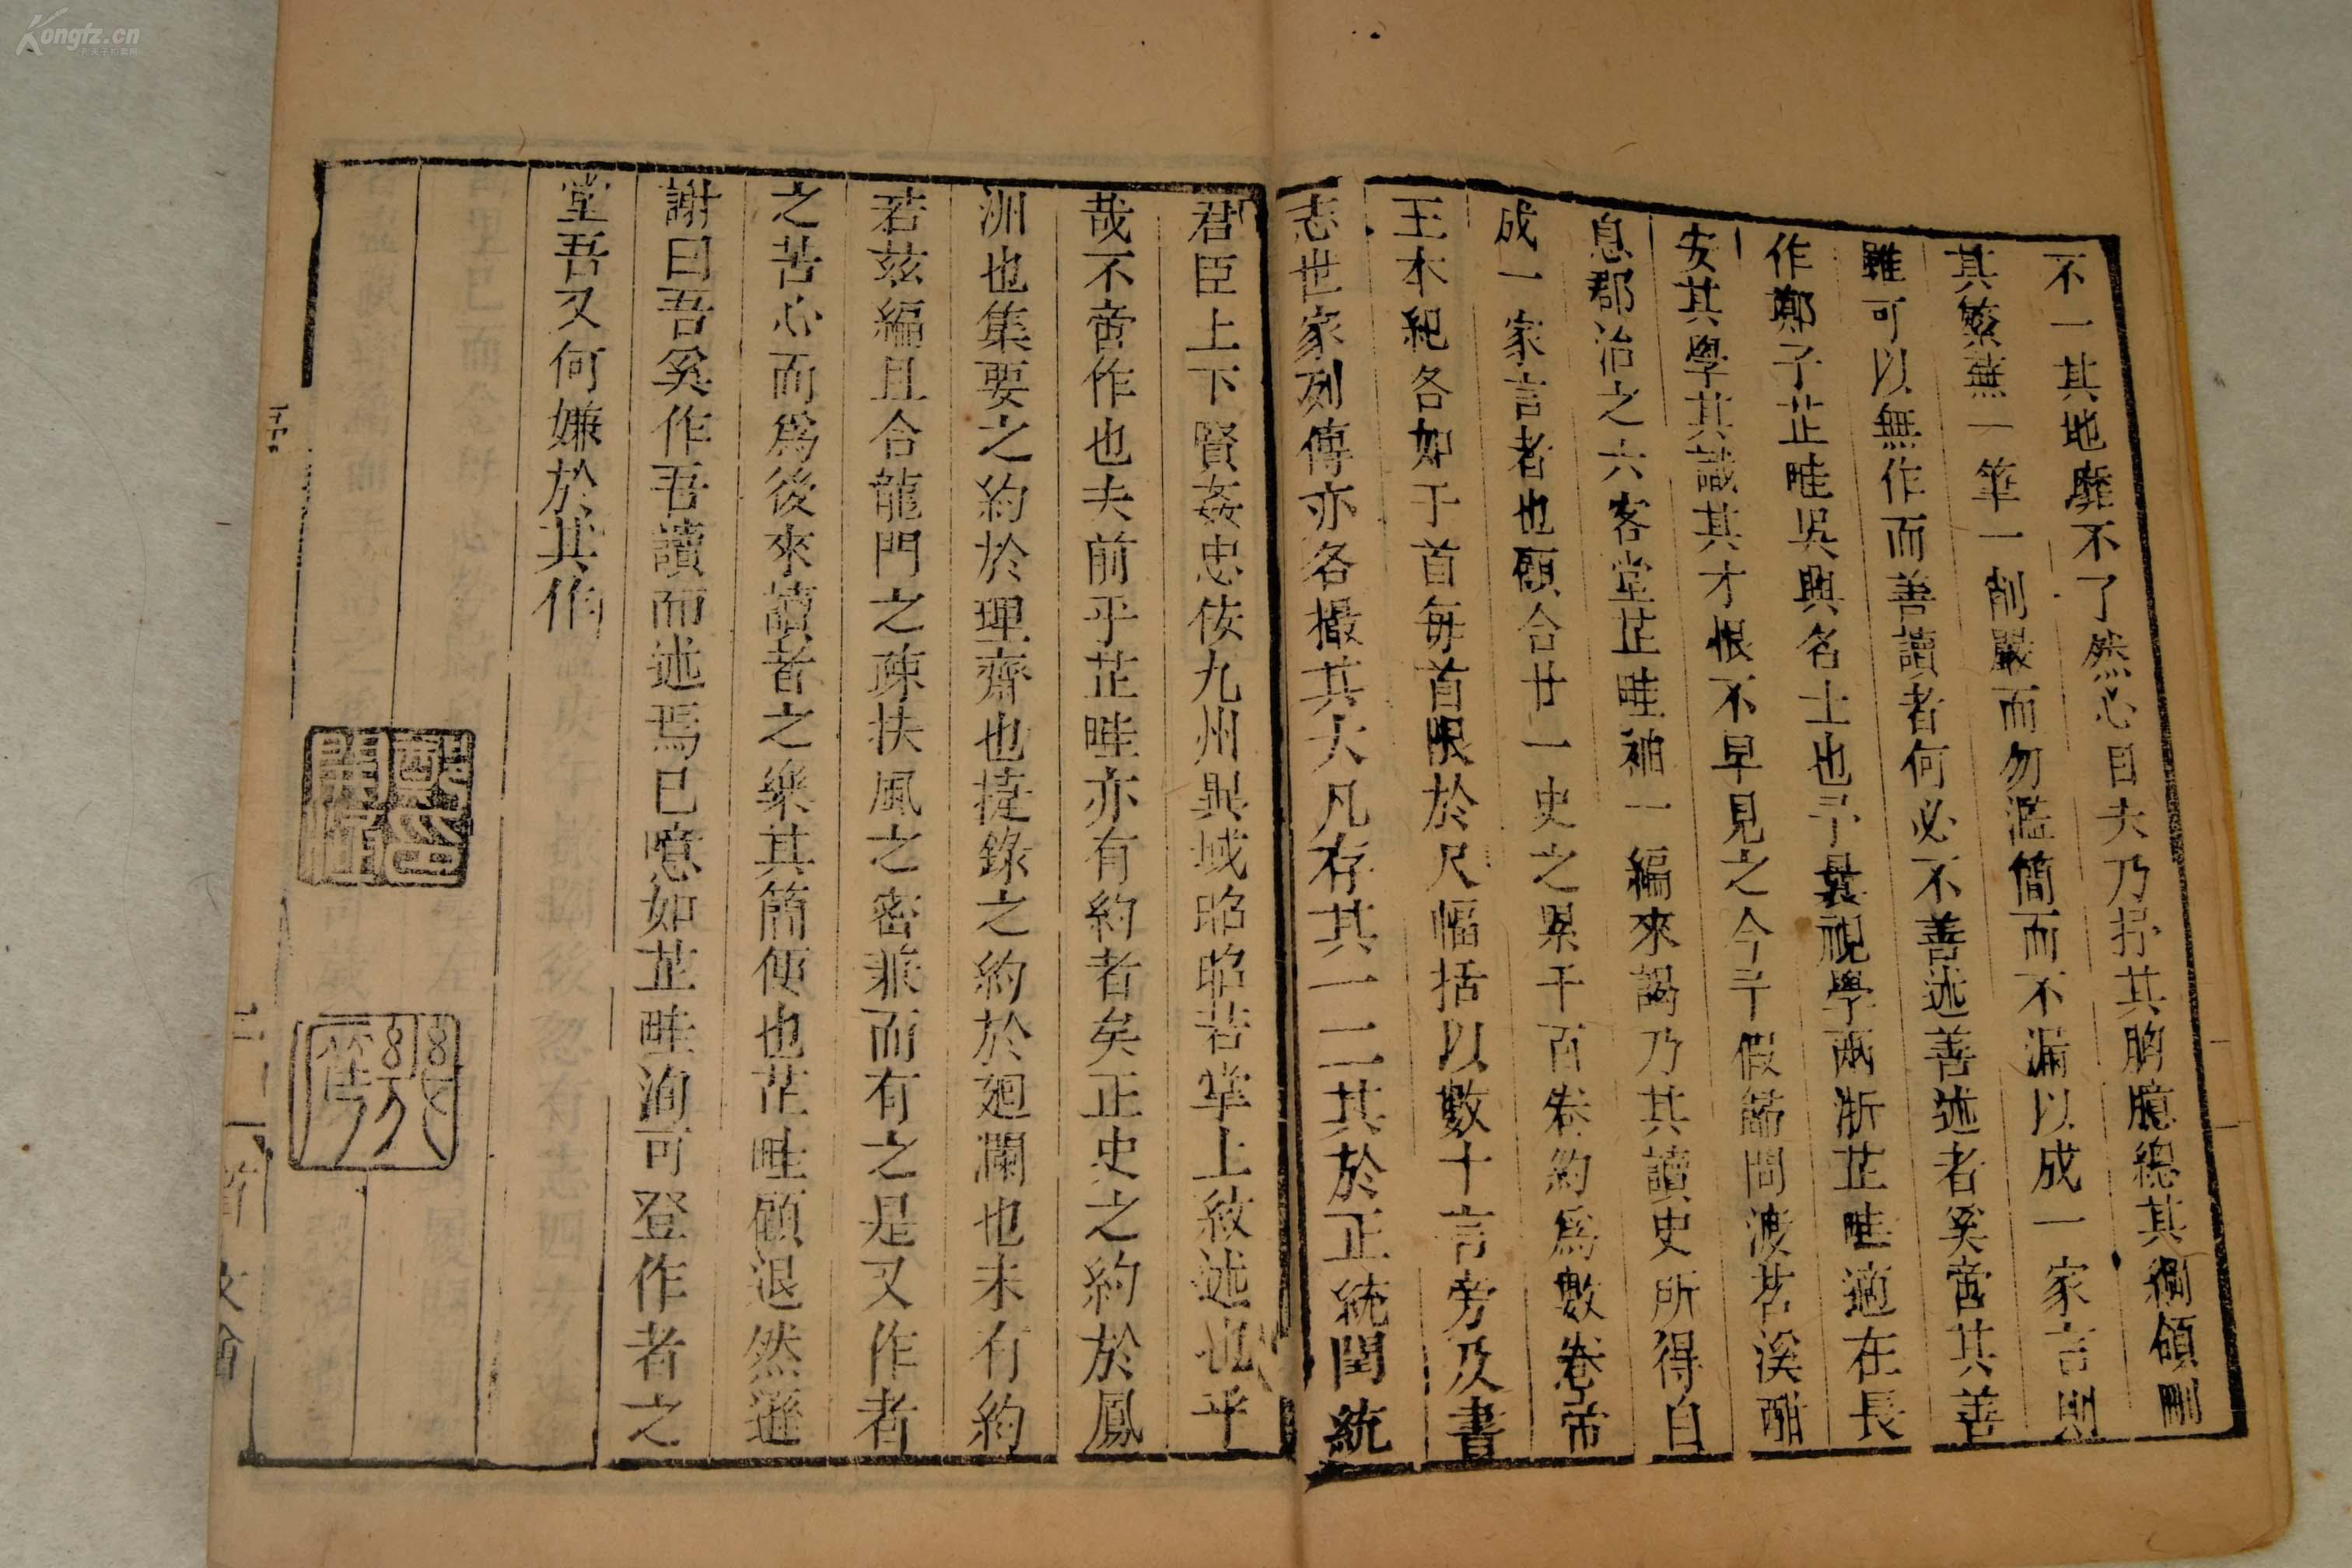 不一其地靡不了然心目夫乃抒其胸臆總其綱領剛
其繁蕪一筆一削嚴而勿濫簡而不漏以成一家言則
雖可以無作而善讀者何必不善述善述者奚啻其善
作鄭子芷畦吳興名士也予曩視學兩浙芷畦適在長
安其學其識其才恨不早見之今予假節問渡苕溪
息郡治之六客堂芷畦袖一編來謁乃其讀史所得自
成一家言者也顧合廿一史之累千百卷約為數卷帝
王本紀各如干首每首限於尺幅括以數十言旁及書
志世家列傳亦各撮其大凡存其一二其於正統閏統
君臣上下賢姦忠佞九州異域昭昭若掌上紋述也乎
哉不啻作也夫前乎芷畦亦有約者矣正史之約於鳳
洲也集要之約於理齋也捷錄之約於廻瀾也未有約
若茲編且合龍門之疎扶風之密兼而有之是又作者
之苦心而為後來讀者之樂其簡便也芷畦顧退然遜
謝曰吾奚作吾讀而述焉已噫如芷畦洵可登作者之
堂吾又何嫌於其作
Kongfz.cn